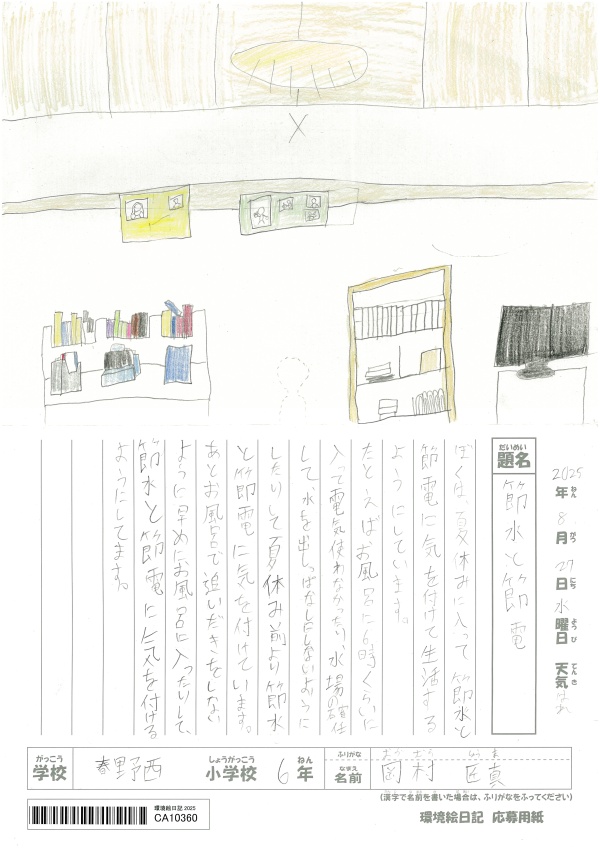 2025年ねん8月がつ27日にち水曜日ようび 天気てんきはれ
題名だいめい 節水と節電
ぼくは、夏休みに入って節水と
節電に気を付けて生活する
ようにしています。
たとえばお風呂に6時くらいに
入って電気使わなかったり、水場の
して、水を出しっぱなしにしないように
したりして夏休み前より節水
と節電に気を付けています。
あとお風呂で追いだきをしない
ように早めにお風呂に入ったりして、
節水と節電に気を付ける
ようにしてます。
学校がっこう 春野西 小学校しょうがっこう 6年ねん
ふりがな
名前なまえ 岡村 匠真
(漢字で名前を書いた場合は、ふりがなをふってください)
環境絵日記 2025
CA10360
環境絵日記 応募用紙